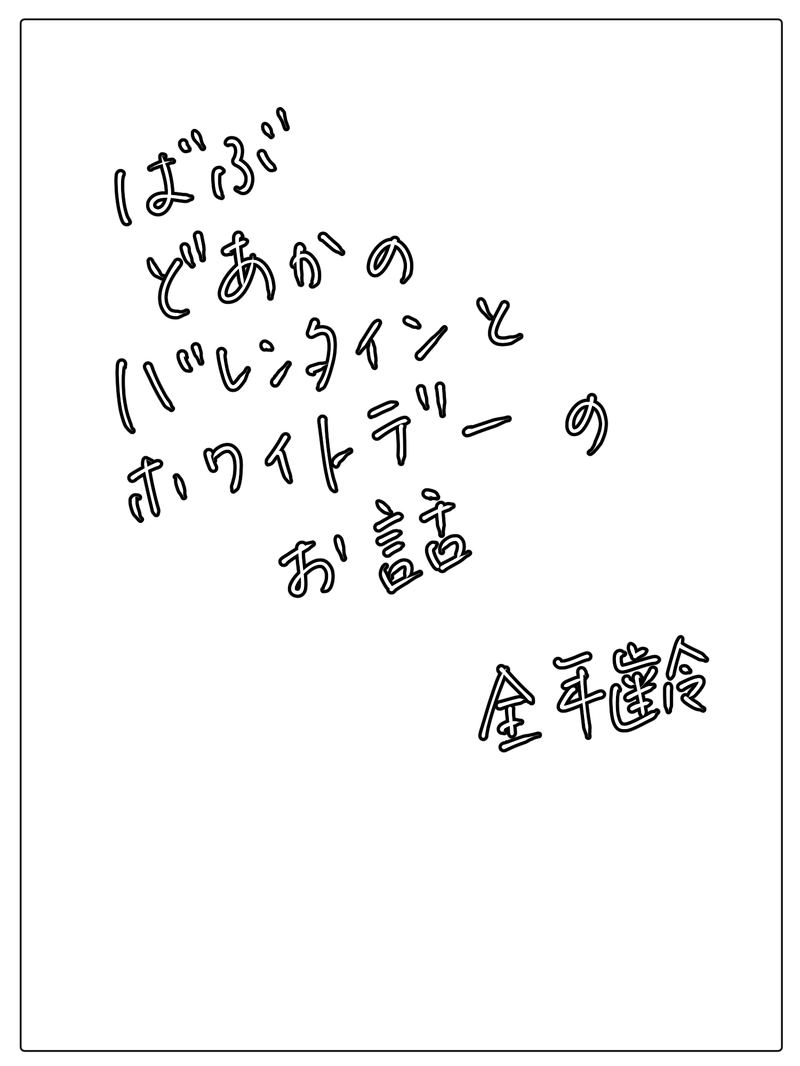 ばぶ
どあかの
バレンタインと
ホワイトデーの
お話
全年齢